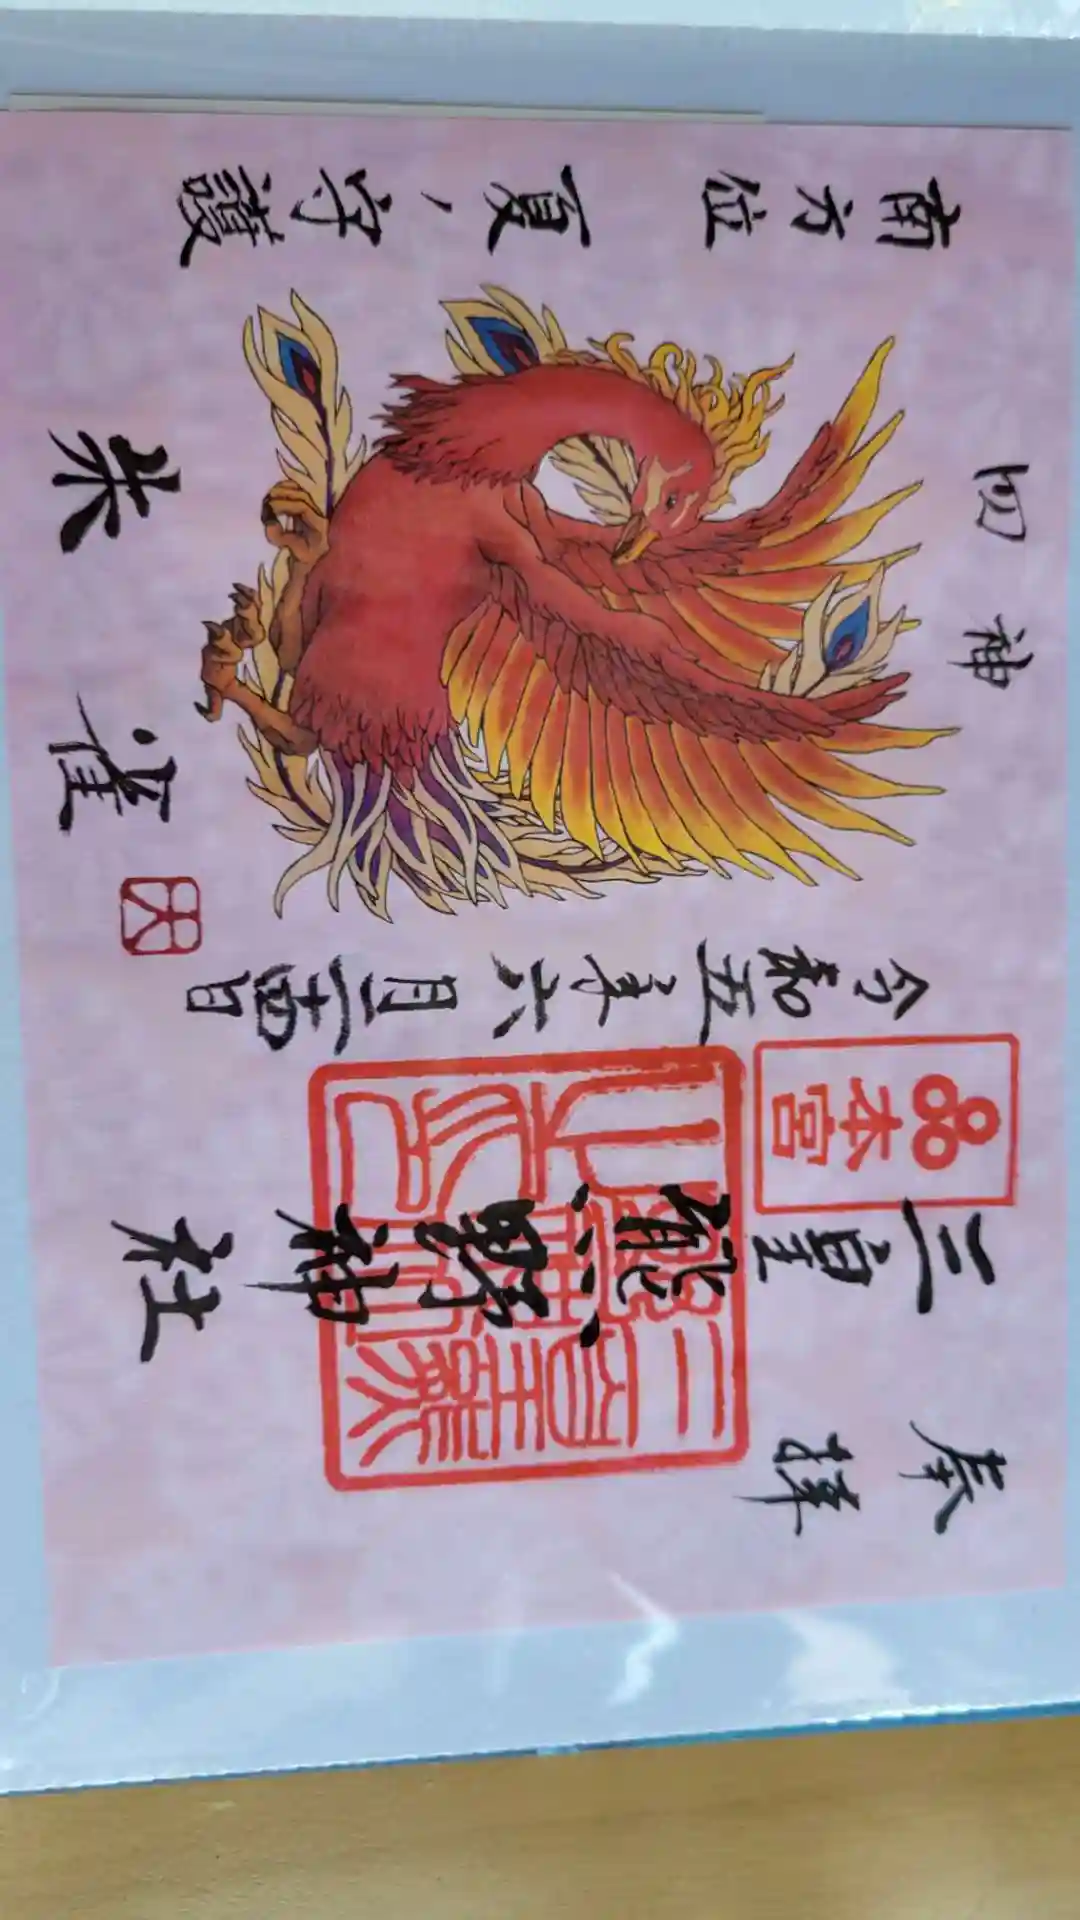 奉拝
三皇熊野神社
本宮
令和五年六月二十四日
四神
朱雀
南方位 夏ノ守護